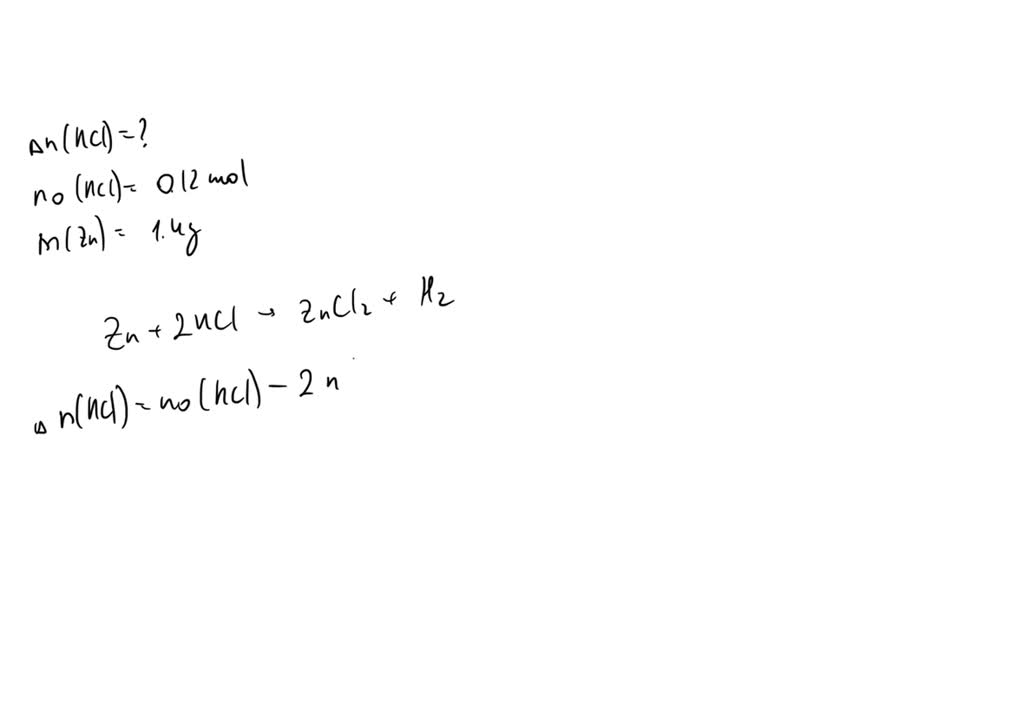 Δn(HCl)=?
n₀(HCl)= 0.12 mol
m(Zn)= 1.4g
Zn + 2HCl → ZnCl₂ + H₂
Δn(HCl)=n₀(HCl)-2n